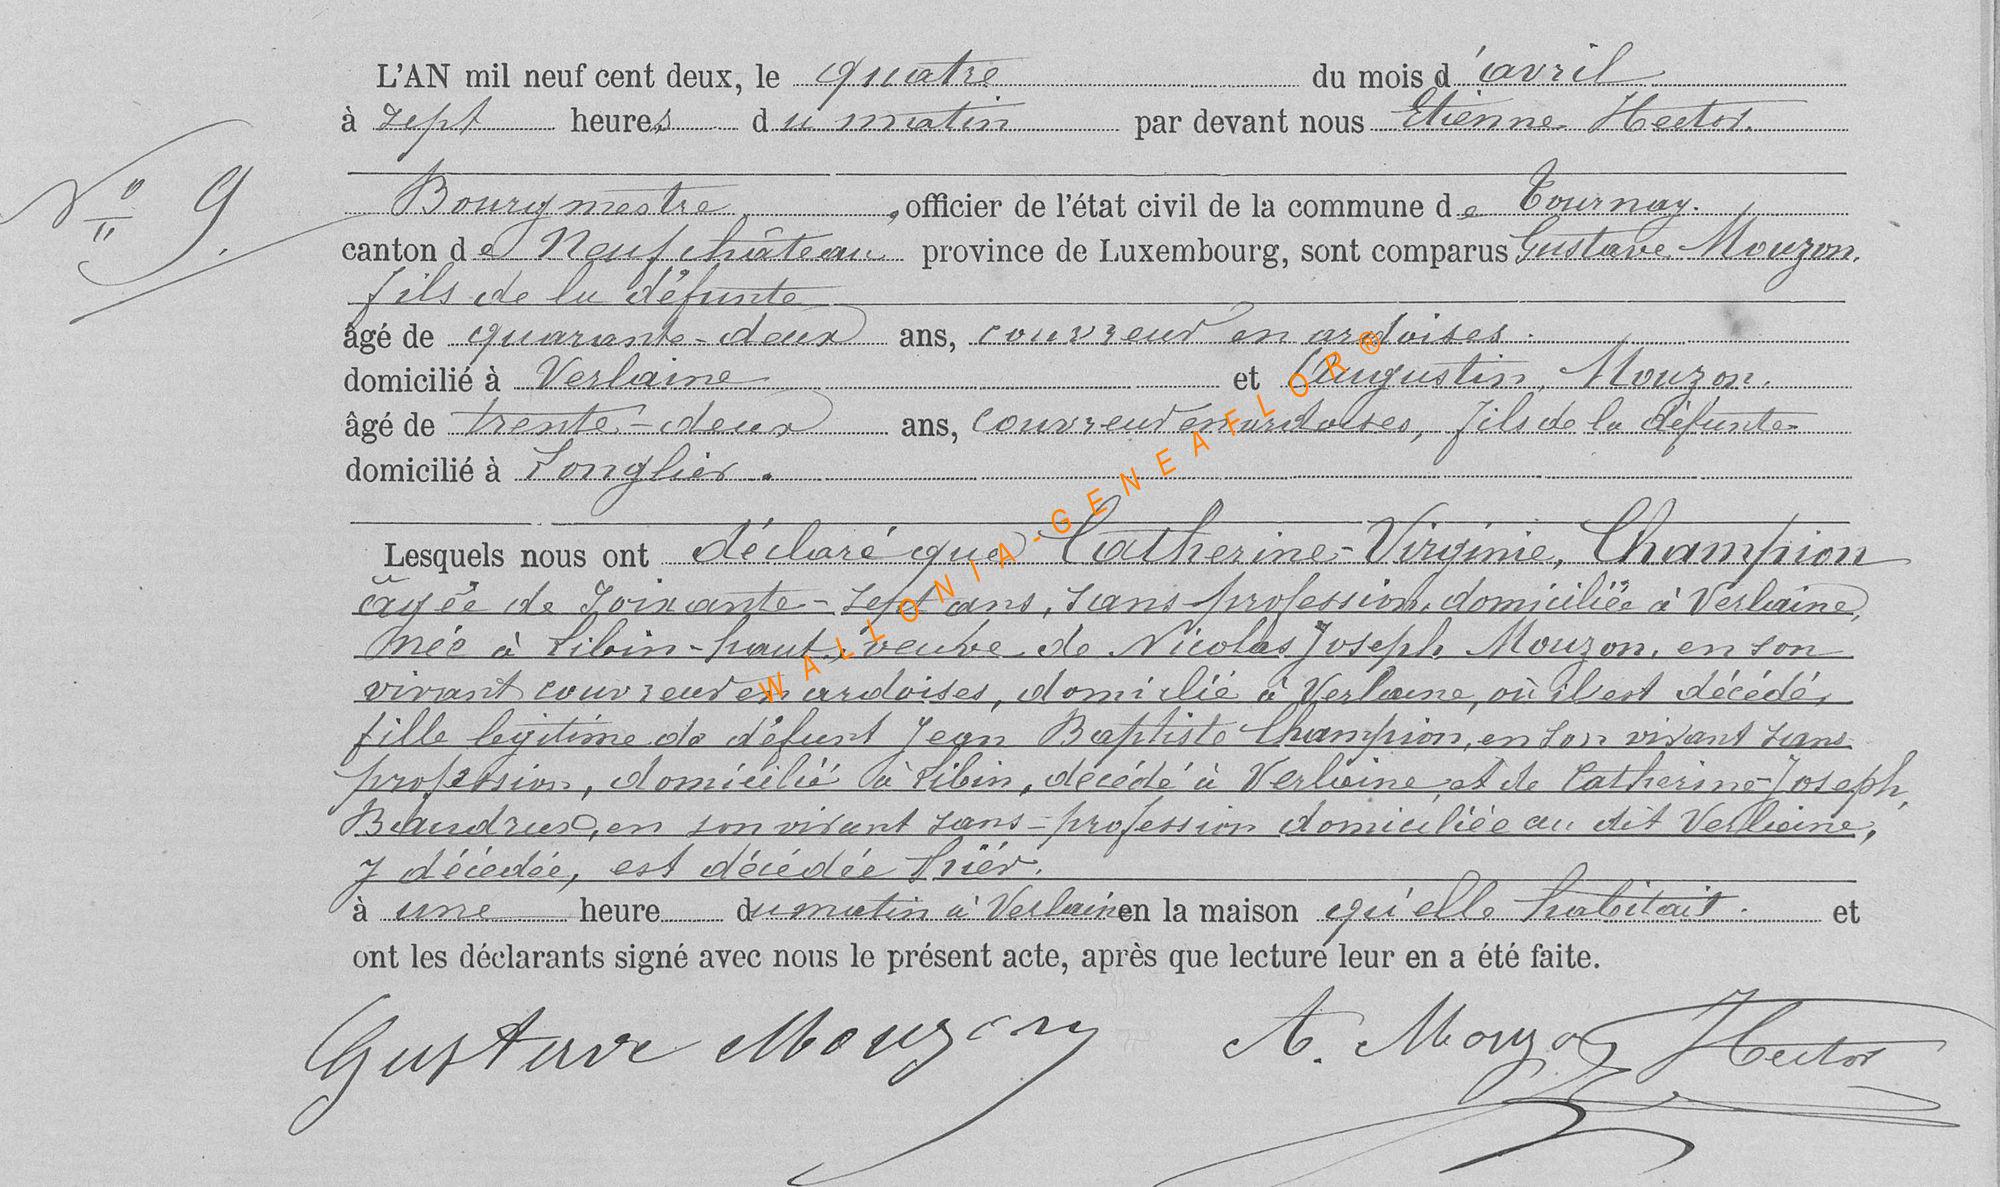 L'AN mil neuf cent deux, le quatre du mois d'avril
à sept heures du matin par devant nous Etienne Hector.
N° 9.
Bourgmestre, officier de l'état civil de la commune de Tournay.
canton de Neufchâteau province de Luxembourg, sont comparus Gustave Mouzon.
fils de la défunte
âgé de quarante-deux ans, couvreur en ardoises.
domicilié à Verlaine et Augustin, Mouzon.
âgé de trente-deux ans, couvreur en ardoises, fils de la défunte
domicilié à Longlier.
Lesquels nous ont déclaré que Catherine-Virginie, Champion
âgée de soixante-sept ans, sans profession, domiciliée à Verlaine,
née à Libin-haut, veuve de Nicolas Joseph Mouzon, en son
vivant couvreur en ardoises, domicilié à Verlaine, où il est décédé,
fille légitime de défunt Jean Baptiste Champion, en son vivant sans
profession, domicilié à Libin, décédé à Verlaine et de Catherine-Joseph,
Baudrux, en son vivant sans-profession domiciliée au dit Verlaine,
y décédée, est décédée hier.
à une heure du matin à Verlaine en la maison qu'elle habitait. et
ont les déclarants signé avec nous le présent acte, après que lecture leur en a été faite.
Gustave Mouzon A. Mouzon Hector
WALLONIA-GENEAFLOR®